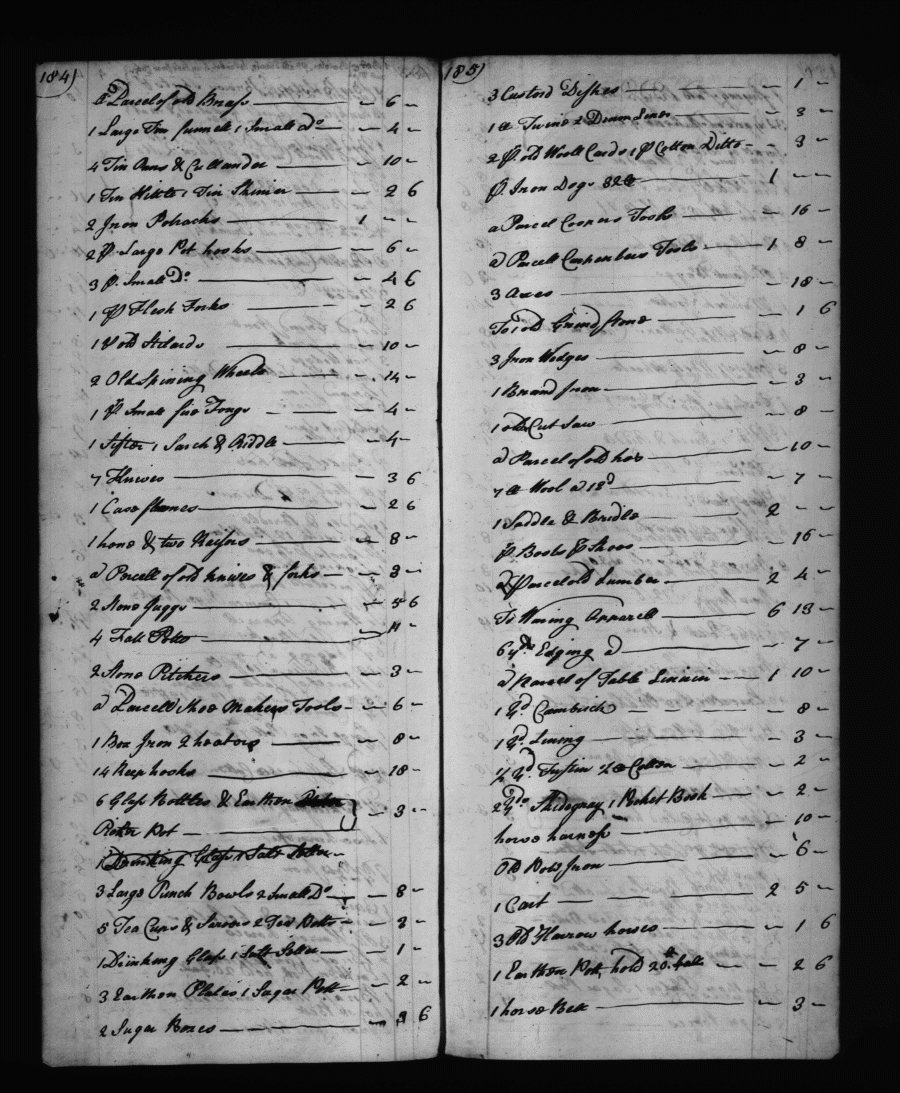 184)
a Parcel of old Brass — - 6 -
1 Large Tin funnell 1 Small do — - 4 -
4 Tin Pans & Cullander — - 10 -
1 Tin Kittle 1 Tin Skimer — - 2 6
2 Iron Potracks — 1 - -
2 pr Large Pot hooks — - 6 -
3 pr Small Do — - 4 6
1 pr Flesh Forks — - 2 6
1 pr old Stilards — - 10 -
2 Old Spining Wheels — - 14 -
1 pr Small fire Tongs - - 4 -
1 Sifter 1 Sarch & Riddle — - 4 -
7 Knives — - 3 6
1 Case fleames — - 2 6
1 hone & two Raisors — - 8 -
a Parcell of old knives & forks — - 3 -
2 Stone Juggs — - 5 6
4 Fatt Potts — - 11 -
2 Stone Pitchers — - 3 -
a Parcell Shoe Makers Tools - - 6 -
1 Box Iron 2 heators — - 8 -
14 Reephooks — - 18 -
6 Glass Bottles & Earthen
Pot — } - 3 -
1 Drinking Glass 1 Salt Seller -
3 Large Punch Bowls 2 Small Do - 8 -
5 Tea Cups & Sarsers 2 Tea Potts - - 3 -
1 Drinking Glass 1 Salt Seller — - 1 -
3 Earthen Plates 1 Sugar Pott — - 2 -
2 Sugar Boxes — - 6
185)
3 Custord Dishes — - 1 -
1 lb Twine 2 Drum Lines — - 3 -
2 pr old Wooll Cards 1 pr Cotton Ditto - - 3 -
pr Iron Dogs 32 lb — 1 - -
a Parcel Coopers Tools — - 16 -
a Parcell Carpenters Tools — 1 8 -
3 Axes — - 18 -
To 1 old Grindstone — - 1 6
3 Iron Wedges — - 8 -
1 Brand Iron — - 3 -
1 old Cut Saw — - 8 -
a Parcel of old hoes — - 10 -
7 lb Wool a 12d — - 7 -
1 Saddle & Bridle — 2 - -
pr Boots pr Shoes — - 16 -
a Parcel old Lumber — 2 4 -
To Wearing Apparell — 6 13 -
6 yds Edging a — - 7 -
a Parcel of Table Linnin — 1 10 -
1 yd Cambrick — - 8 -
1 yd Lining — - 3 -
1/2 yd Fustin 1/2 lb Cotton — - 2 -
2 yds 1 Pocket Book — - 2 -
horse harness — - 10 -
Old Plow Iron — - 6 -
1 Cart — 2 5 -
3 Old Harrow horses — - 1 6
1 Earthen Pot, hold 20 lb fatt — - 2 6
1 horse Bell — - 3 -